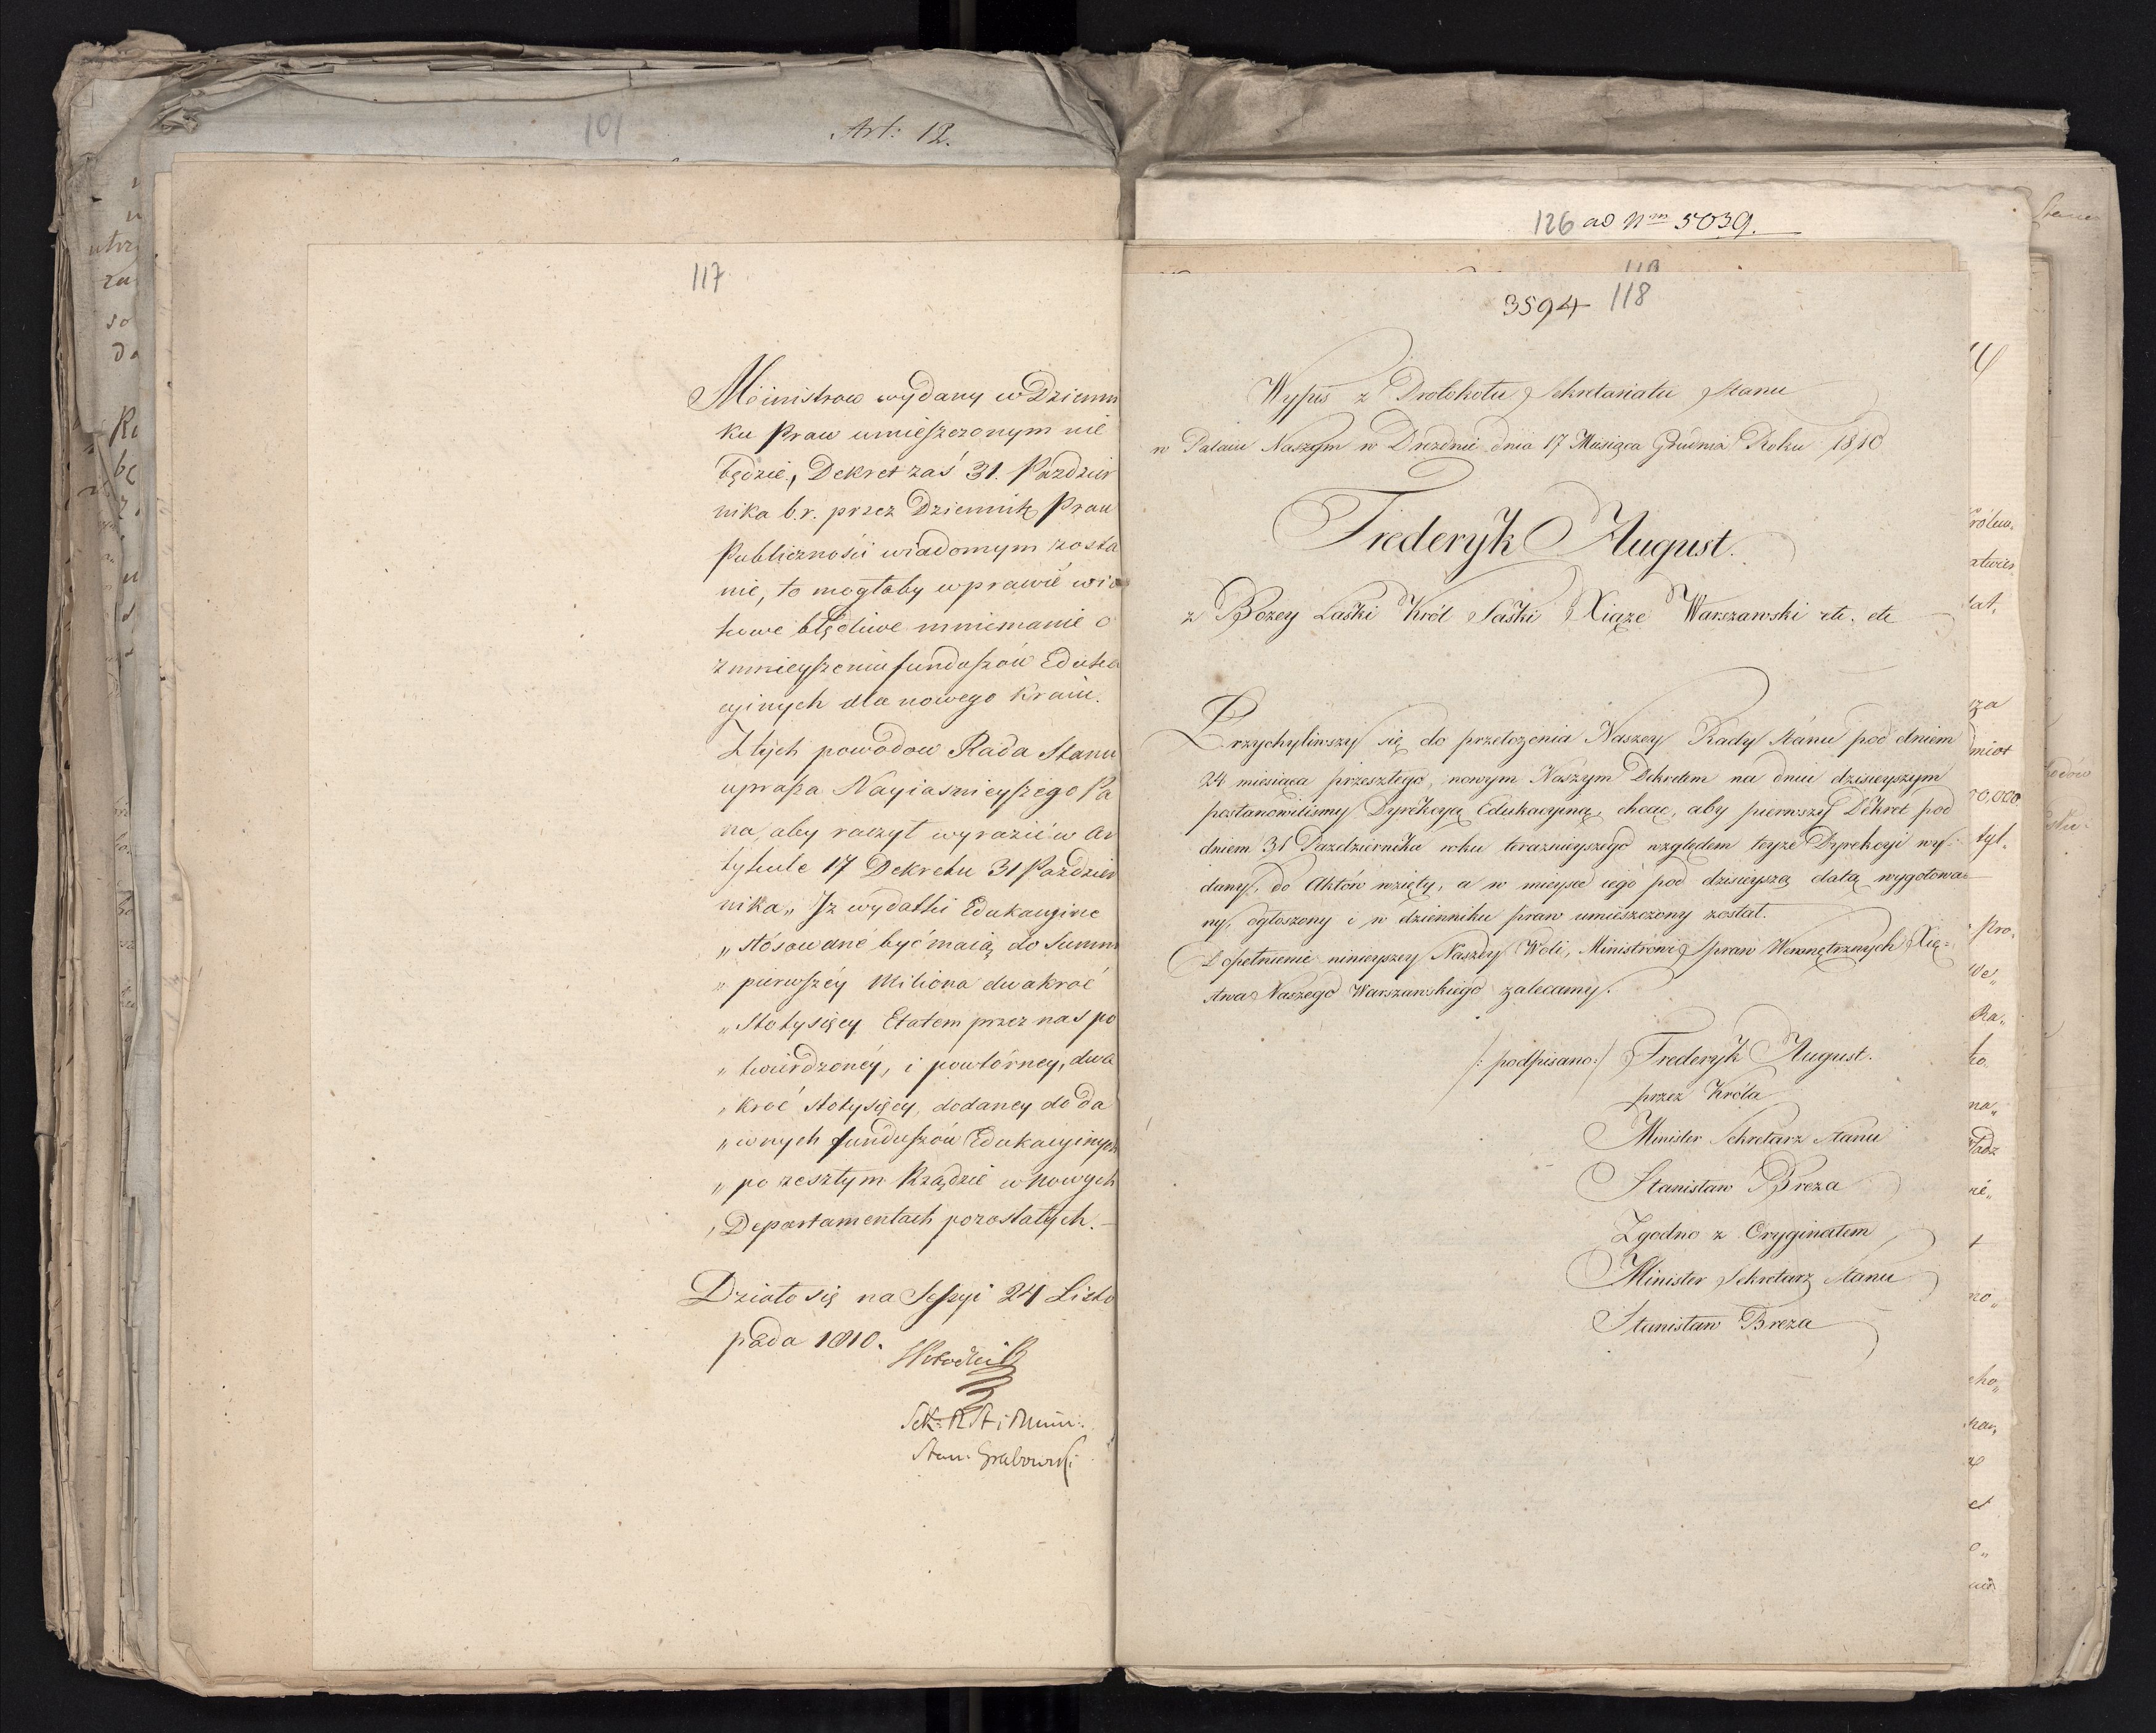 101
Art: 12.
117
Ministrow wydany w Dzienni
ku Praw umieszczonym nie
będzie, Dekret zaś 31. Paździer
nika b.r. przez Dziennik Praw
Publiczności wiadomym zosta
nie, to mogłoby wprawić
błędliwe mniemanie o
zmnieyszeniu funduszów Eduka
cyinych dla nowego Kraiu.
Z tych powodow Rada Stanu
uprasza Nayiasnieyszego Pa
na, aby raczył wyrazić w Ar
tykule 17 Dekretu 31 Paździer
nika „ Iż wydatki Edukacyine
„ stósowane być maią do Summ
„ pierwszéy Miliona dwakroć
„ Stotysięcy Etatem przez nas po
„ twierdzonéy, i powtórney, dwa
„ kroć stotysięcy, dodaney do da
„ wnych funduszów Edukacyinych
„ po zeszłym Rządzie w nowych
„ Departamentach pozostałych. —
Działo się na Sessyi 24 Listo
pada 1810.
Sek: R. St: i Minis:
Stan: Grabowski
126 ad Nm 5039.
3594 118
Wypis z Protokołu Sekretariatu Stanu
w Pałacu Naszym w Dreźnie dnia 17 Miesiąca Grudnia Roku 1810
Frederyk August.
z Bożey Łaski Król Saski Xiąże Warszawski etc. etc
Przychyliwszy się do przełożenia Naszey Rady Stanu pod dniem
24 miesiąca przeszłego, nowym Naszym Dekretem na dniu dzisieyszym
postanowilismy Dyrekcyą Edukacyiną, chcąc, aby pierwszy Dekret pod
dniem 31 Pazdziernika roku teraznieyszego względem teyże Dyrekcyi wy-
dany, do Aktów wzięty, a w mieysce iego pod dzisieyszą datą wygotowa-
ny, ogłoszony i w dzienniku praw umieszczony został.
Dopełnienie ninieyszey Naszey Woli, Ministrowi Spraw Wewnętrznych Xię-
stwa Naszego Warszawskiego zalecamy.
/: podpisano:/ Frederyk August.
przez Króla
Minister Sekretarz Stanu
Stanisław Breza
Zgodno z Oryginałem
Minister Sekretarz Stanu
Stanisław Breza